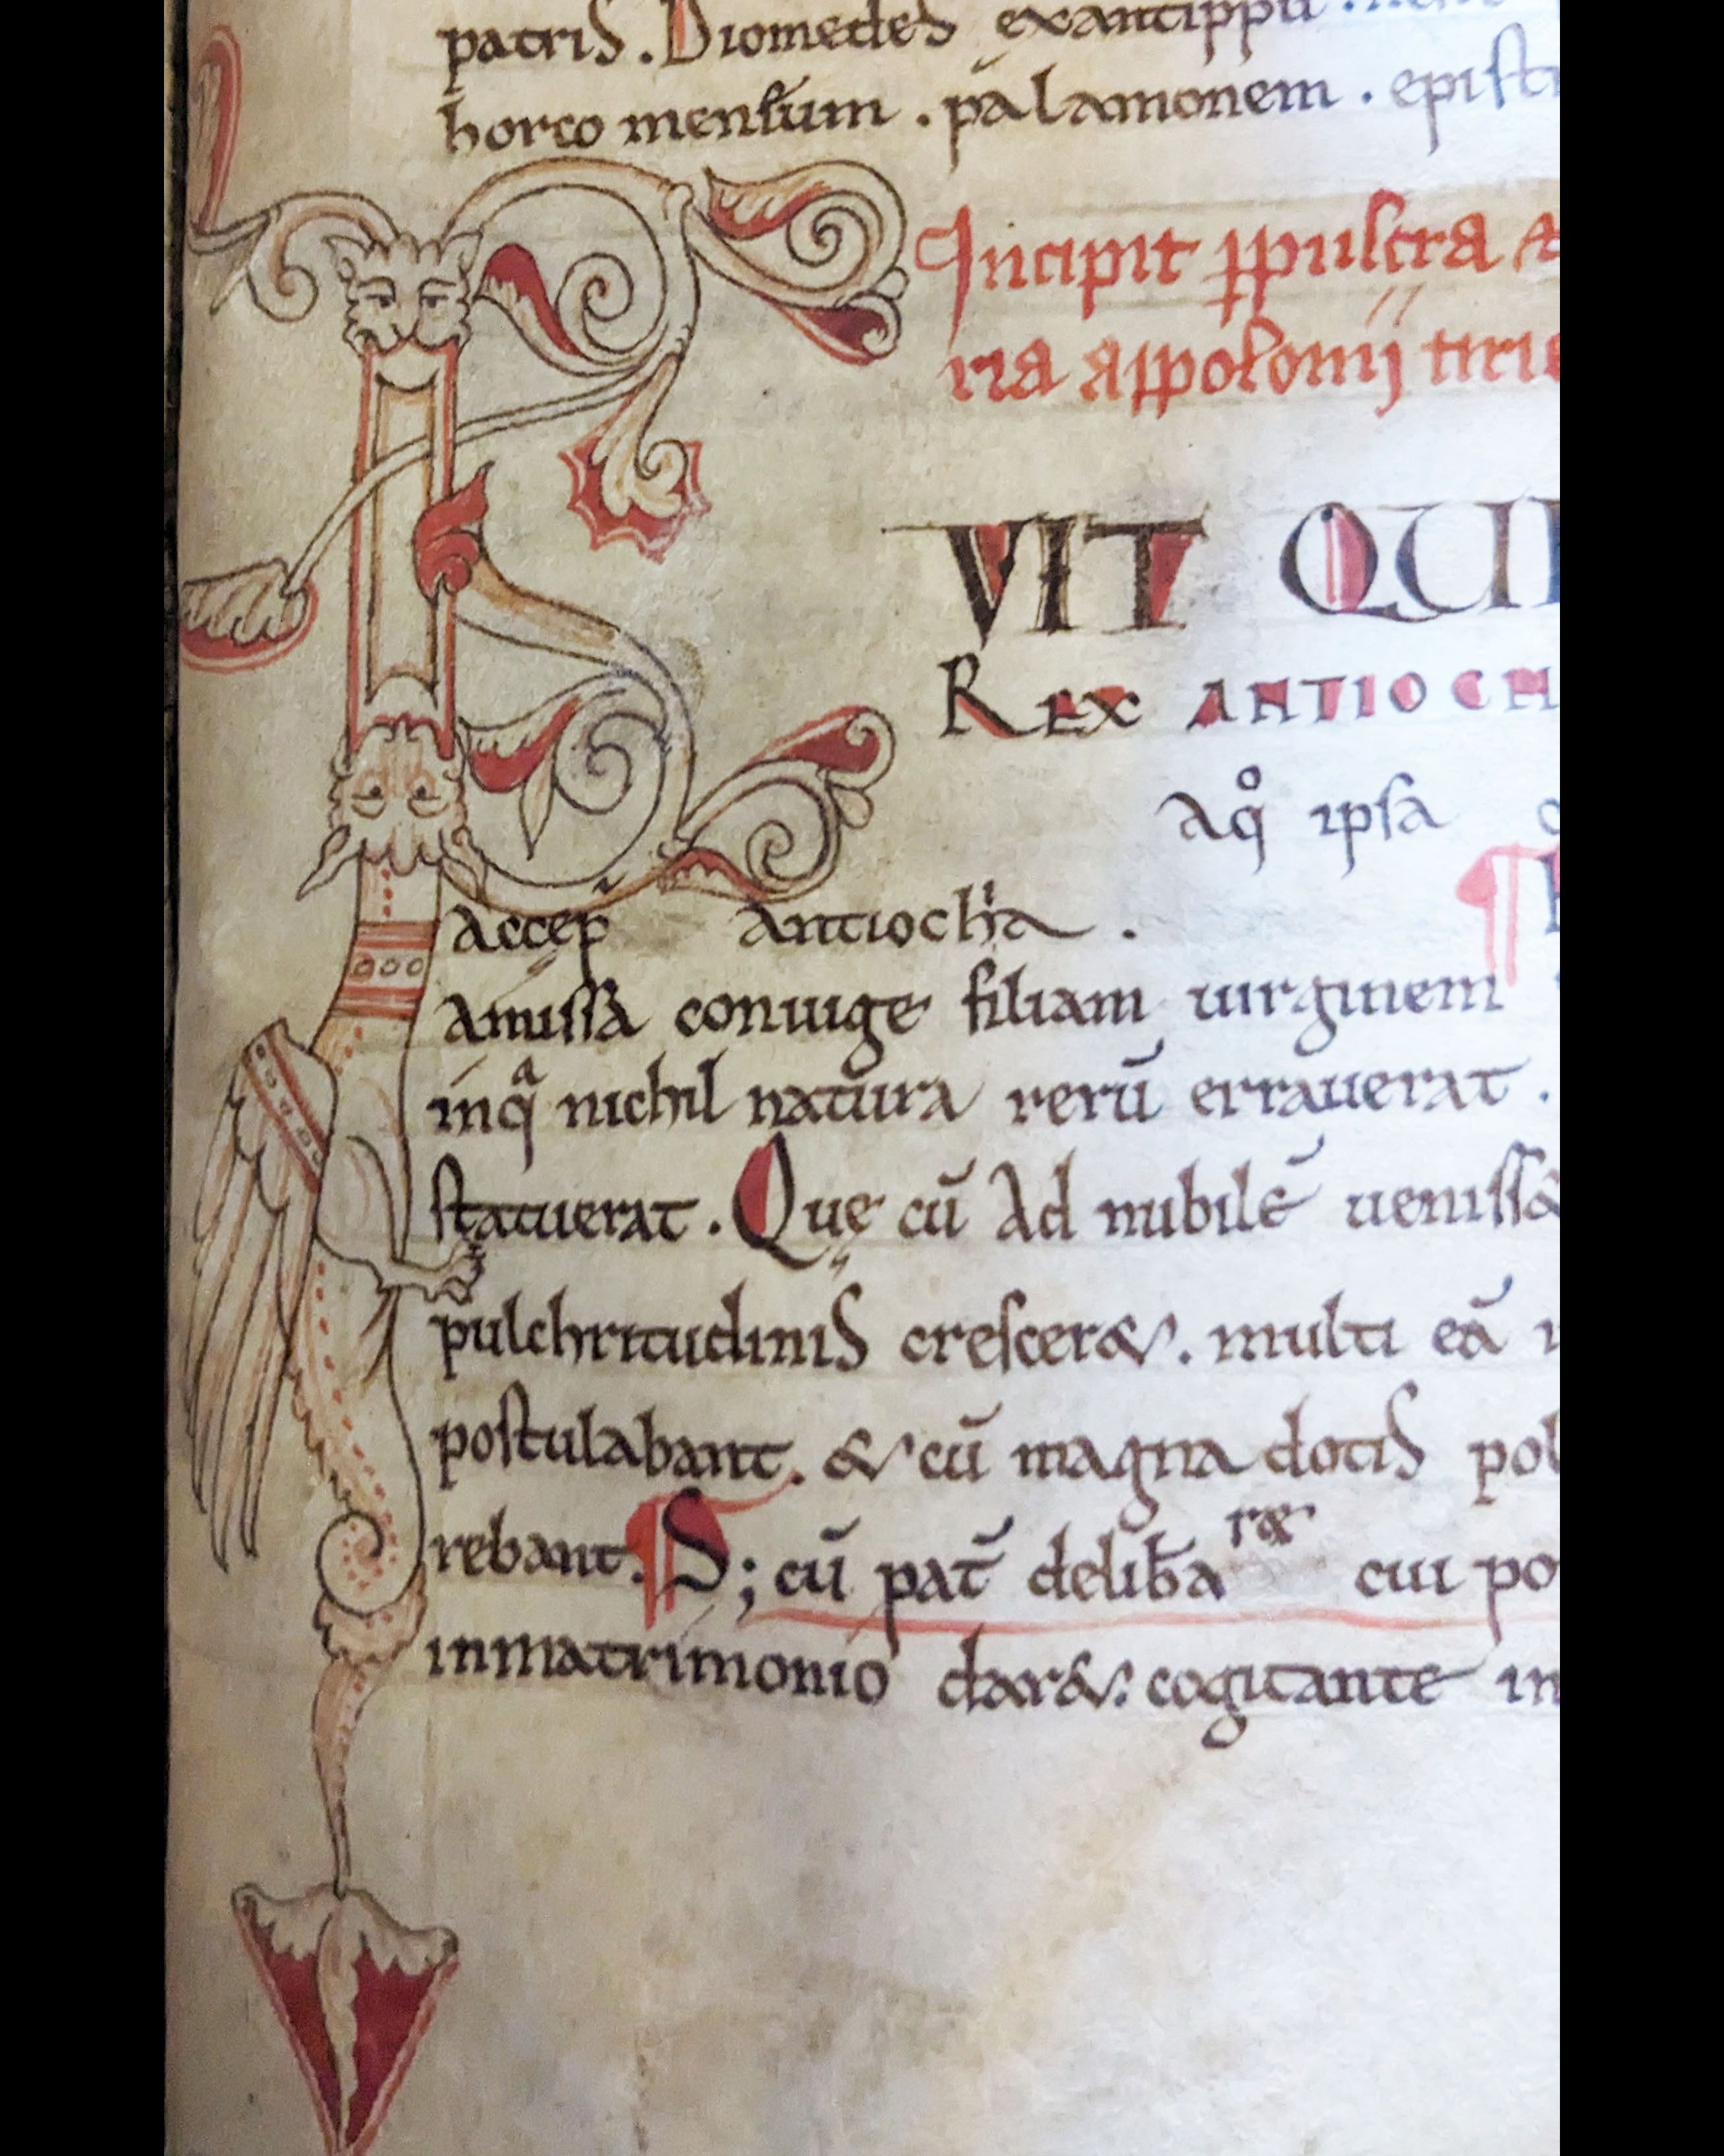 patris. Diomedes exantippu
horco mensūm. palamonem. epist
Incipit ꝑpulcra
ria appolonij tirie
VIT QUI
REX ANTIOCH
aqͦ ipsa
accep̄ antioch'a.
amissa coniuge filiam uirginem
inqᵃ nichil natura rerū errauerat.
statuerat. Quę cū ad nubilē ueniss&
pulchritudinis crescer&. multi eā
postulabant. & cū magna dotis pol
rebant. ¶ S; cū pat̄ delib̄a r& cui po
inmatrimonio dar&. cogitante in